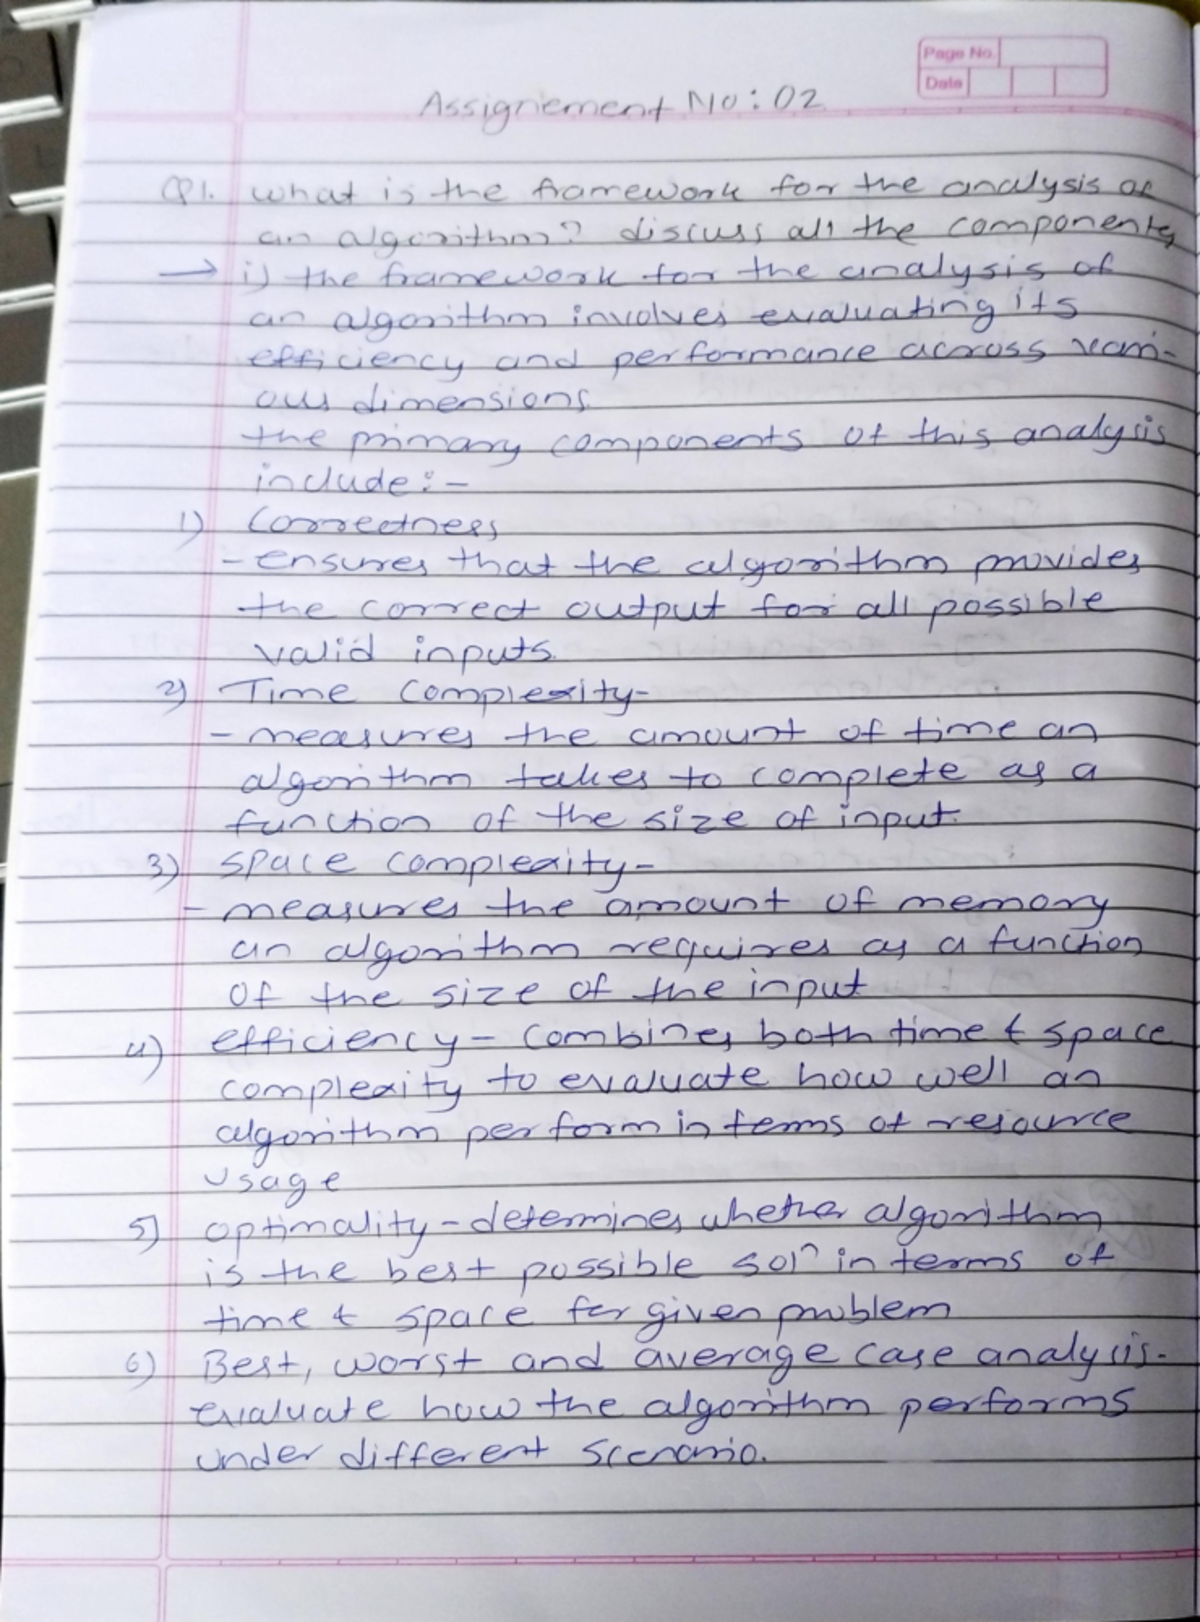 Page No.
Date
Assignement No: 02
Q1. What is the framework for the analysis of
an algorithm? discuss all the components
→ i) the framework for the analysis of
an algorithm involves evaluating its
efficiency and performance across vari-
ous dimensions.
the primary components of this analysis
include:-
1) Correctness
- ensures that the algorithm provides
the correct output for all possible
valid inputs.
2) Time Complexity-
- measures the amount of time an
algorithm takes to complete as a
function of the size of input.
3) Space Complexity-
- measures the amount of memory
an algorithm requires as a function
of the size of the input
4) efficiency - Combines both time & space
complexity to evaluate how well an
algorithm perform in terms of resource
usage
5) optimality - determines whether algorithm
is the best possible solⁿ in terms of
time & space for given problem
6) Best, worst and average case analysis-
evaluate how the algorithm performs
under different scenario.